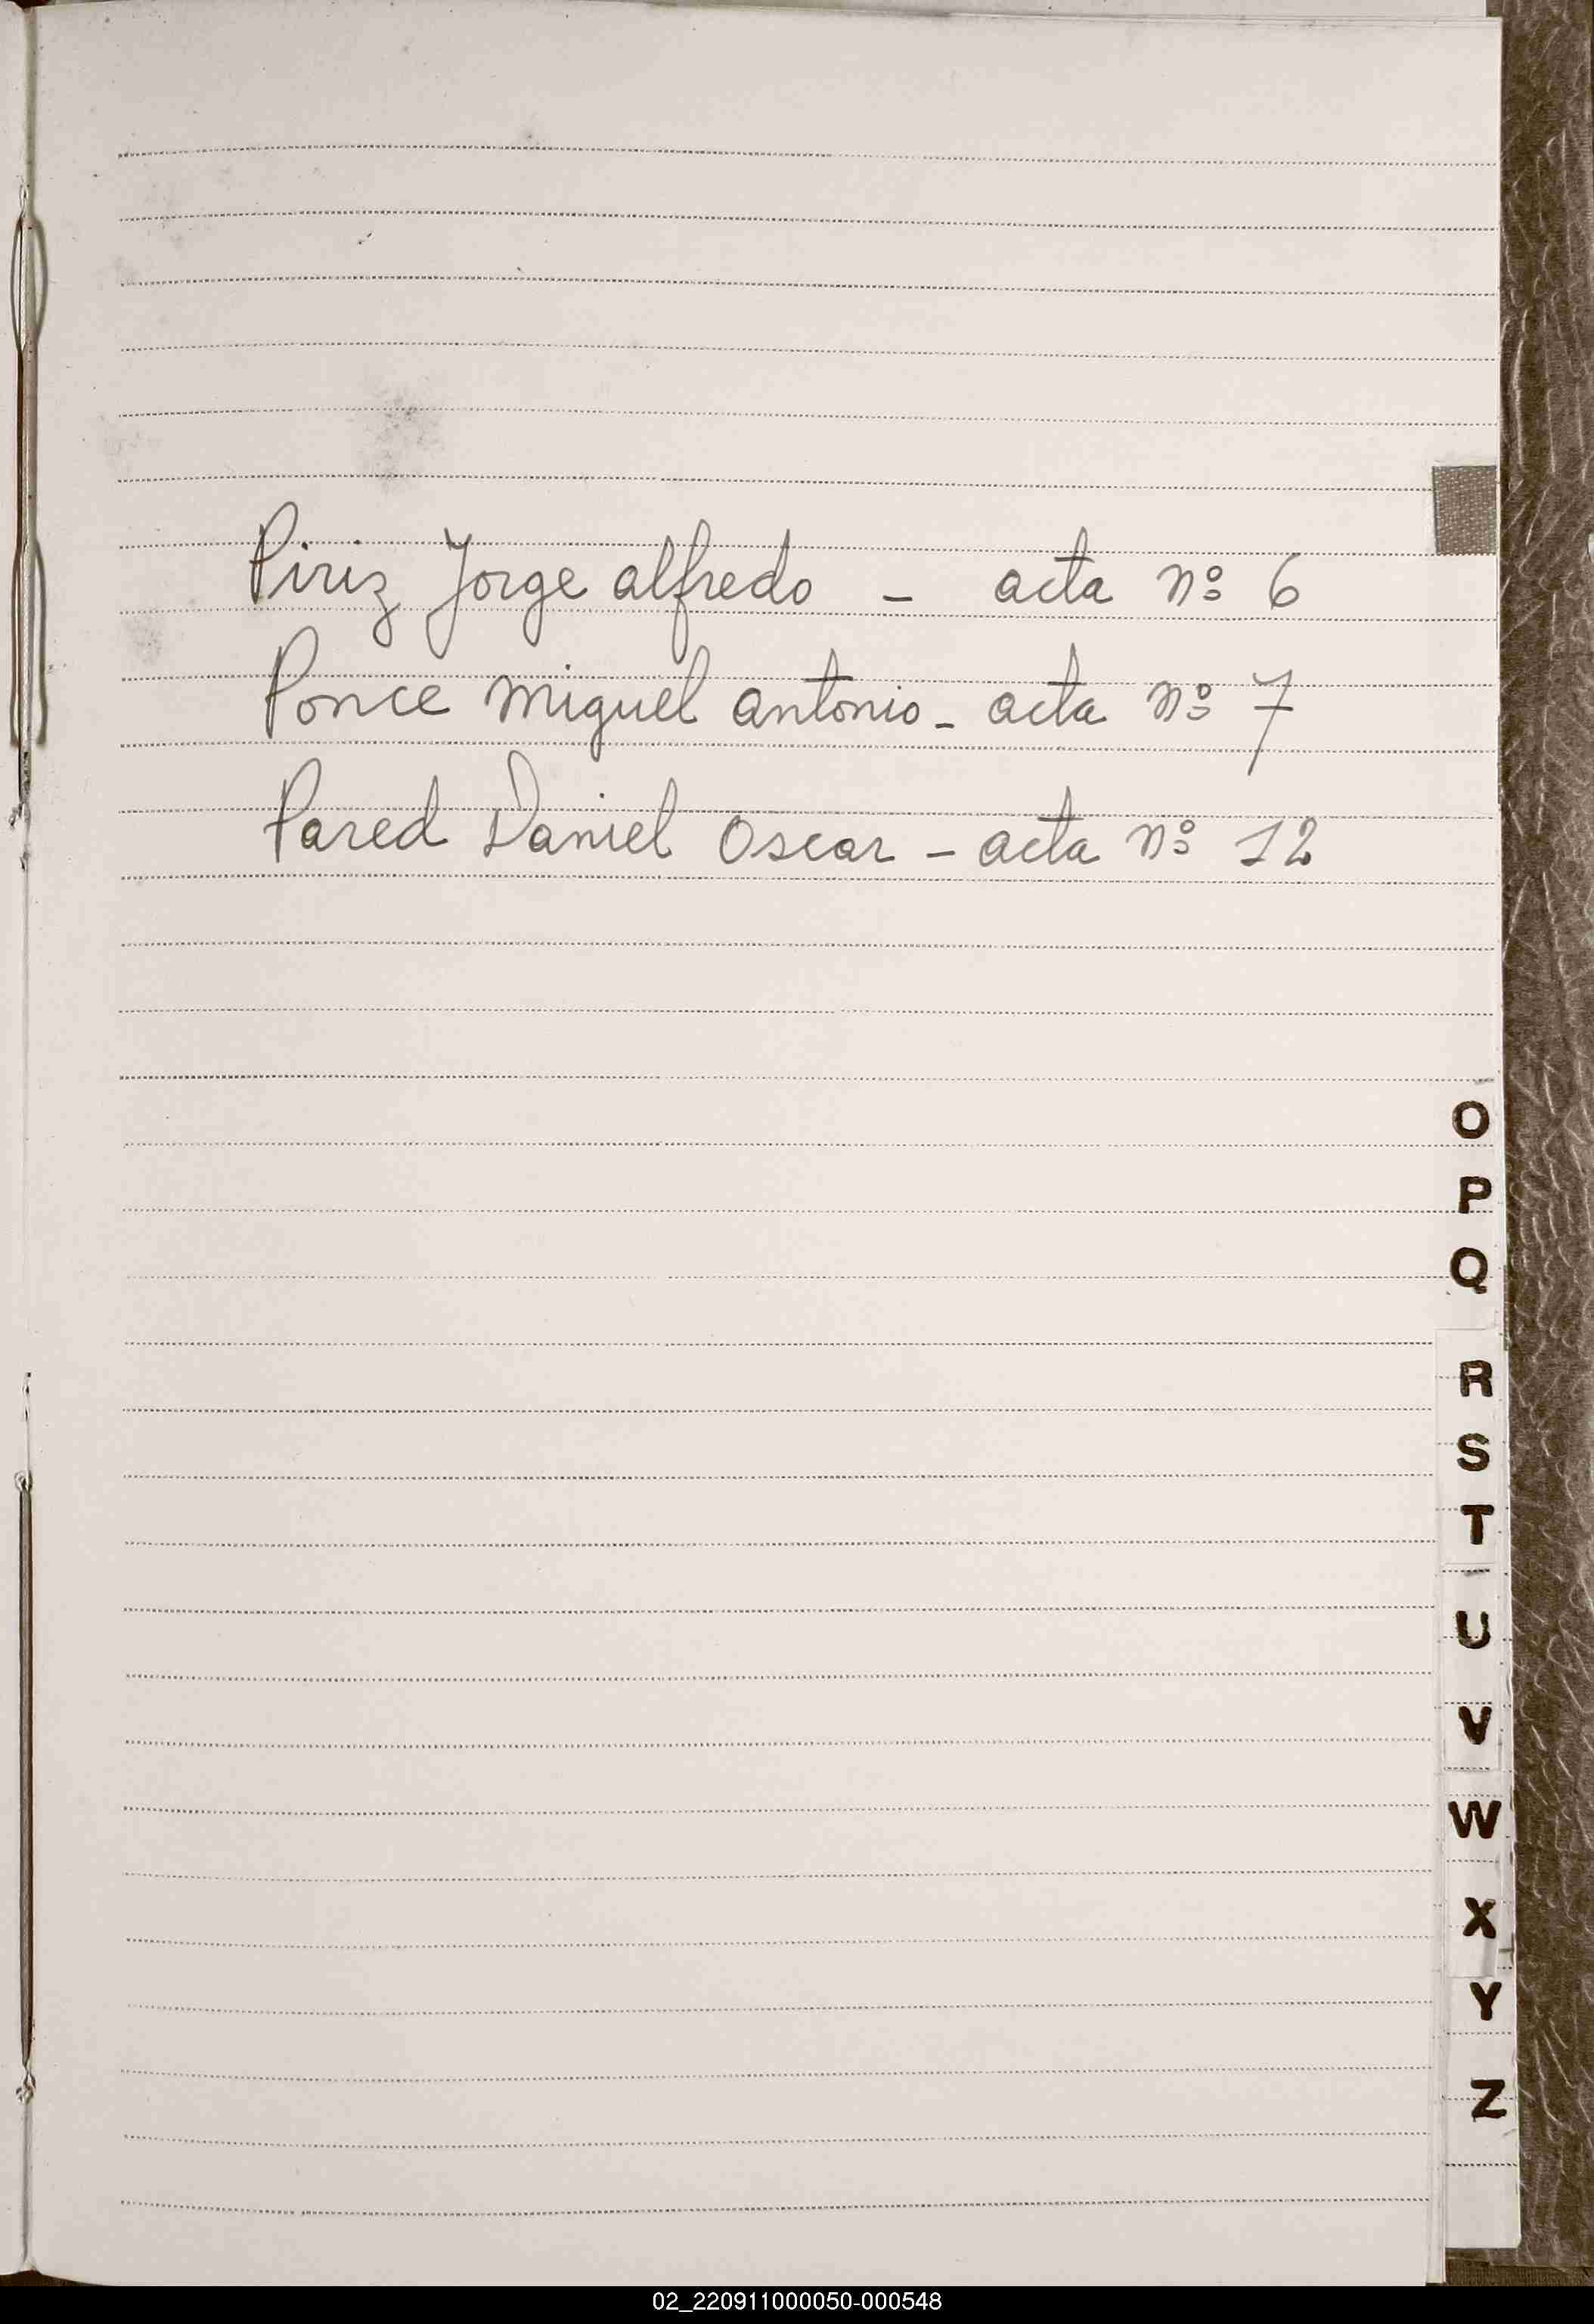 Piriz Jorge alfredo - acta nº 6
Ponce Miguel antonio - acta nº 7
Pared Daniel Oscar - acta nº 12
O
P
Q
R
S
T
U
V
W
X
Y
Z
02_220911000050-000548